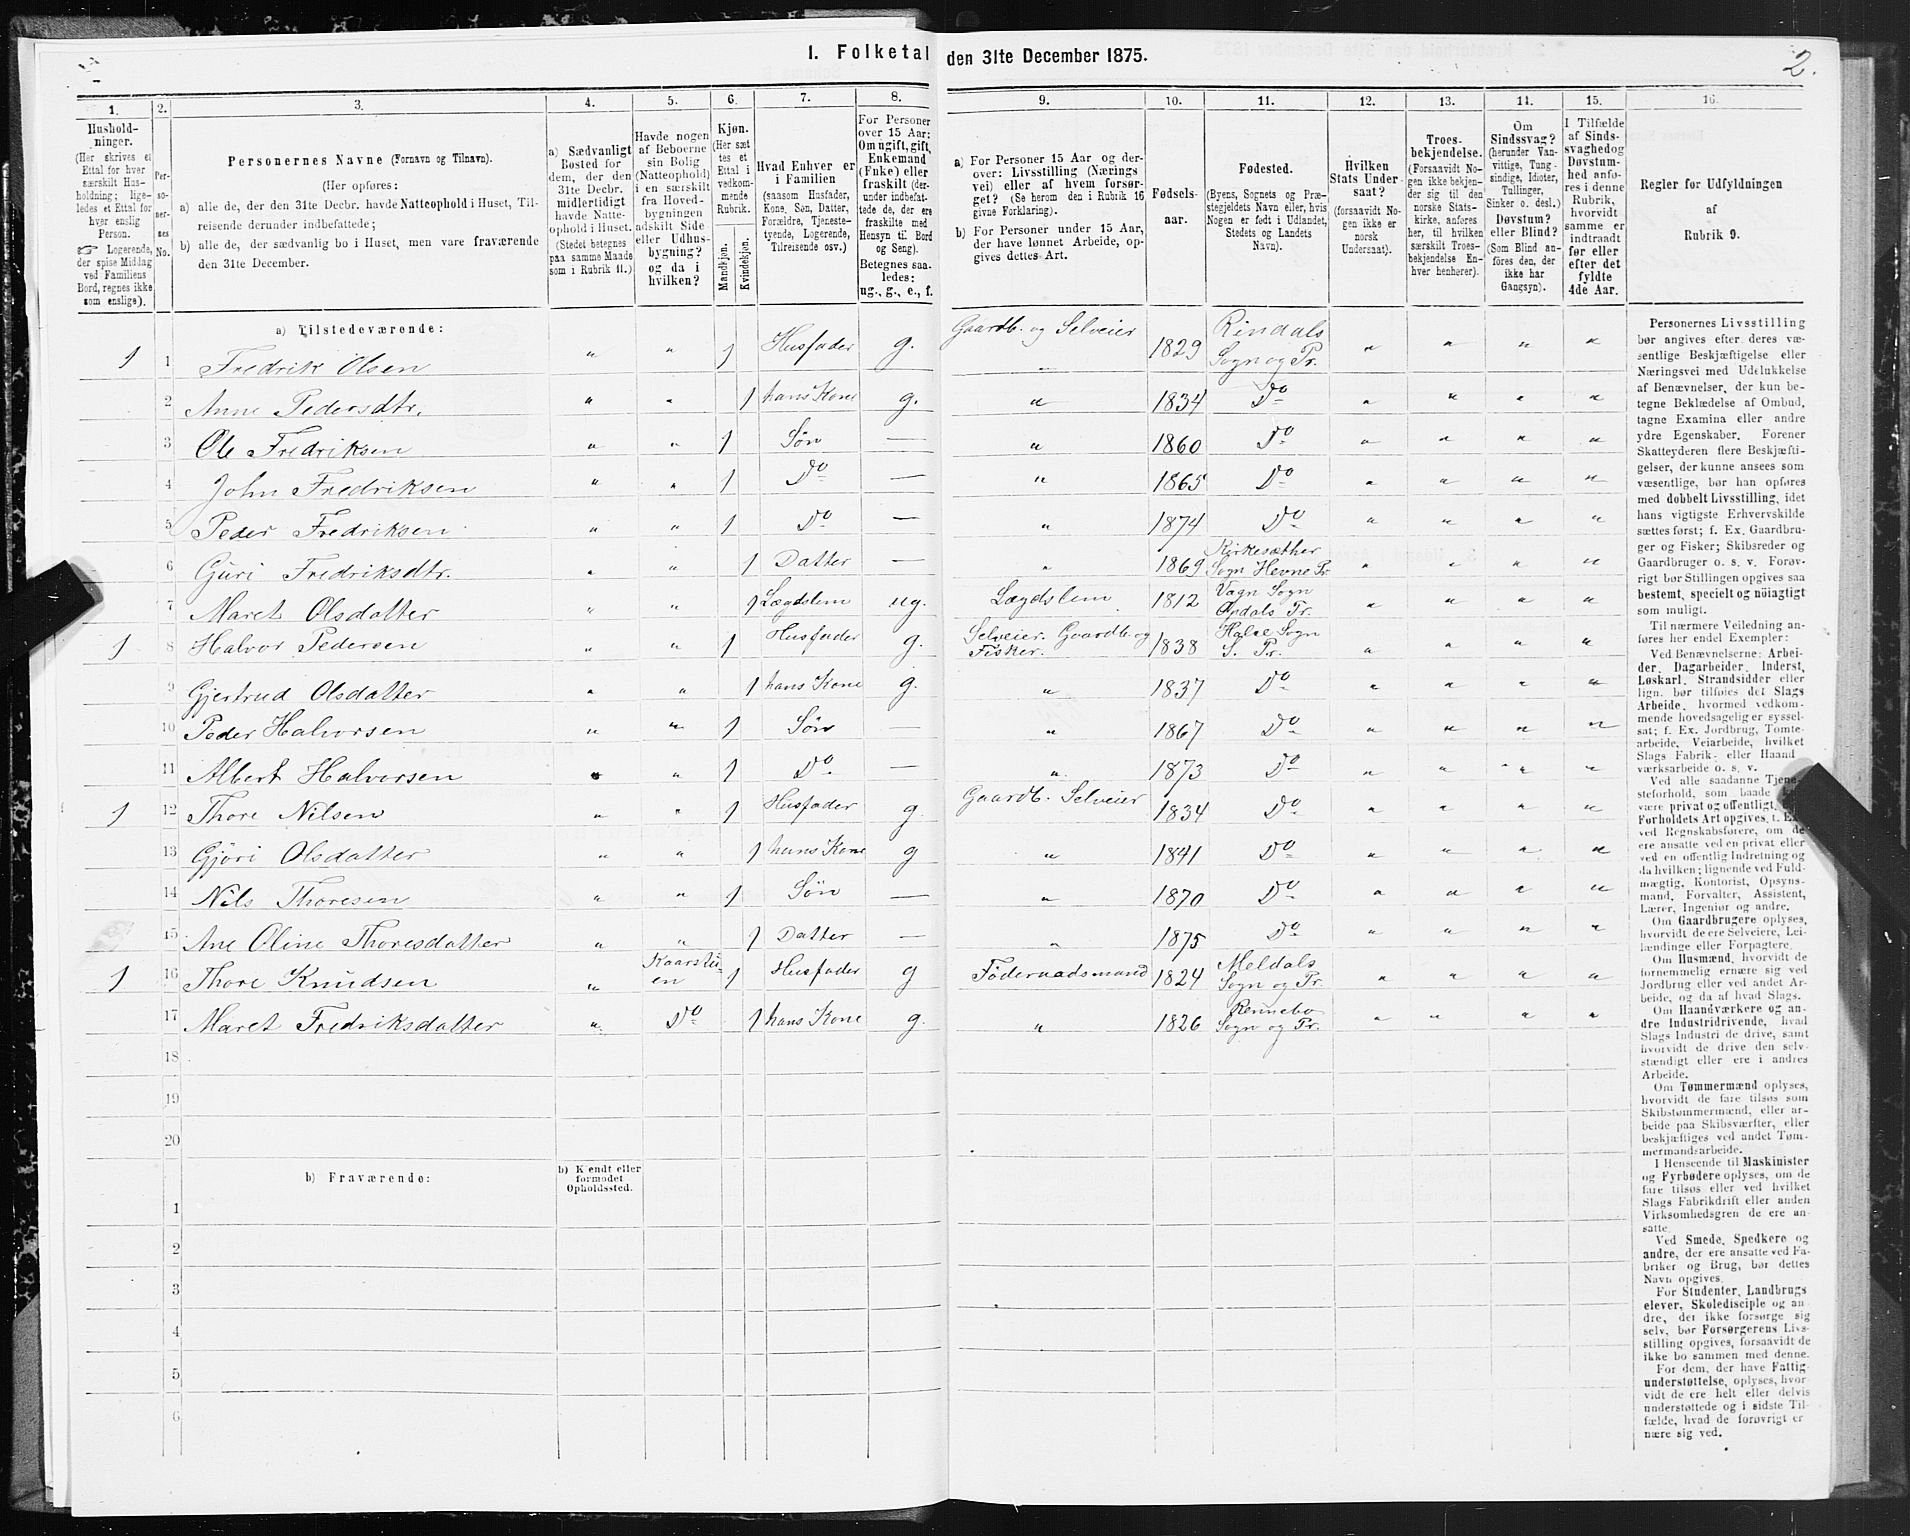 1. Folketal den 31te December 1875.
2.
1. 2. 3. 4. 5. 6. 7. 8. 9. 10. 11. 12. 13. 14. 15. 16.
Hushold-
ninger.
(Her skrives et
Ettal for hver
særskilt Hus-
holdning; lige-
ledes et Ettal for
hver enslig
Person.
☞ Logerende,
der spise Middag
ved Familiens
Bord, regnes ikke
som enslige).
Per-
so-
ner-
nes
No.
Personernes Navne (Fornavn og Tilnavn).
(Her opføres:
a) alle de, der den 31te Decbr. havde Natteophold i Huset, Til-
reisende derunder indbefattede;
b) alle de, der sædvanlig bo i Huset, men vare fraværende
den 31te December.
a) Sædvanligt
Bosted for
dem, der den
31te Decbr.
midlertidigt
havde Natte-
ophold i Huset.
(Stedet betegnes
paa samme Maade
som i Rubrik 11.)
Havde nogen
af Beboerne
sin Bolig
(Natteophold)
i en særskilt
fra Hoved-
bygningen
adskilt Side-
eller Udhus-
bygning?
og da i
hvilken?
Kjøn.
(Her sæt-
tes et
Ettal i
vedkom-
mende
Rubrik.
Mandkjøn.
Kvindekjøn.
Hvad Enhver er
i Familien
(saasom Husfader,
Kone, Søn, Datter,
Forældre, Tjeneste-
tyende, Logerende,
Tilreisende osv.)
For Personer
over 15 Aar:
Om ugift, gift,
Enkemand
(Enke) eller
fraskilt (der-
under indbefat-
tede de, der ere
fraskilte med
Hensyn til Bord
og Seng).
Betegnes saa-
ledes:
ug., g., e., f.
a) For Personer 15 Aar og der-
over: Livsstilling (Nærings
vei) eller af hvem forsør-
get? (Se herom den i Rubrik 16
givne Forklaring).
b) For Personer under 15 Aar,
der have lønnet Arbeide, op-
gives dettes Art.
Fødsels-
aar.
Fødested.
(Byens, Sognets og Præ-
stegjeldets Navn eller, hvis
Nogen er født i Udlandet,
Stedets og Landets
Navn).
Hvilken
Stats Under-
saat?
(forsaavidt No-
gen ikke er
norsk
Undersaat).
Troes-
bekjendelse.
(Forsaavidt No-
gen ikke bekjen-
der sig til den
norske Stats-
kirke, anføres
her, til hvilken
særskilt Troes-
bekjendelse En-
hver henhører).
Om
Sindssvag?
(herunder Van-
vittige, Tung-
sindige, Idioter,
Tullinger,
Sinker o. desl.)
Døvstum?
eller Blind?
(Som Blind an-
føres den, der
ikke har
Gangsyn).
I Tilfælde
af Sinds-
svaghed og
Døvstum-
hed anfø-
res i denne
Rubrik,
hvorvidt
samme er
indtraadt
før eller
efter det
fyldte
4de Aar.
Regler for Udfyldningen
af
Rubrik 9.
a) Tilstedeværende:
1 1 Fredrik Olsen " " 1 Husfader g. Gaardb. og Selveier " 1829 Rindals Sogn og Pr. " " " "
2 Anne Pedersdtr. " " 1 hans Kone g. " 1834 Do " " " "
3 Ole Fredriksen " " 1 Søn — " 1860 Do " " " "
4 John Fredriksen " " 1 Do — " 1865 Do " " " "
5 Peder Fredriksen " " 1 Do — " 1874 Do " " " "
6 Guri Fredriksdtr. " " 1 Datter — " 1869 Kirkesæther Sogn Hevne Pr. " " " "
7 Maret Olsdatter " " 1 Lægdslem ug. Lægdslem 1812 Vagn Sogn Opdals Pr. " " " "
1 8 Halvor Pedersen " " 1 Husfader g. Selveier. Gaardb. og Fisker. 1838 Halse Sogn S. Pr. " " " "
9 Gjertrud Olsdatter " " 1 hans Kone g. " 1837 Do " " " "
10 Peder Halvorsen " " 1 Søn — " 1867 Do " " " "
11 Albert Halvorsen " " 1 Do — " 1873 Do " " " "
1 12 Thore Nilsen " " 1 Husfader g. Gaardb. Selveier 1834 Do " " " "
13 Gjøri Olsdatter " " 1 hans Kone g " 1841 Do " " " "
14 Nils Thoresen " " 1 Søn — " 1870 Do " " " "
15 Ane Oline Thoresdatter " " 1 Datter — " 1875 Do " " " "
1 16 Thore Knudsen " Kaarstu-en 1 Husfader g Föderaadsmand 1824 Meldals Sogn og Pr. " " " "
17 Maret Fredriksdatter " Do 1 hans Kone g. " 1826 Rennebo Sogn og Pr. " " " "
18
19
20
b) Fraværende:
b) Kjendt eller
formodet
Opholdssted.
1
2
3
4
5
6
Personernes Livsstilling
bør angives efter deres væ-
sentlige Beskjæftigelse eller
Næringsvei med Udelukkelse
af Benævnelser, der kun be-
tegne Beklædelse af Ombud,
tagne Examina eller andre
ydre Egenskaber. Forener
Skatteyderen flere Beskjæfti-
gelser, der kunne ansees som
væsentlige, bør han opføres
med dobbelt Livsstilling, idet
hans vigtigste Erhvervskilde
sættes først; f. Ex. Gaardbru-
ger og Fisker; Skibsreder og
Gaardbruger o. s. v. Forøv-
rigt bør Stillingen opgives saa
bestemt, specielt og nöiagtigt
som muligt.
Til nærmere Veiledning an-
føres her endel Exempler:
Ved Benævnelserne: Arbei-
der, Dagarbeider, Inderst,
Løskarl, Strandsidder eller
lign. bør tilføies det Slags
Arbeide, hvormed vedkom-
mende hovedsagelig er syssel-
sat; f. Ex. Jordbrug, Tomte-
arbeide, Veiarbeide, hvilket
Slags Fabrik- eller Haand
værksarbeide o. s. v.
Ved alle saadanne Tjene-
steforhold, som baade
være privat og offentligt,
Forholdets Art opgives, f. Ex.
ved Regnskabsførere, om de
ere ansatte ved en privat eller
ved en offentlig Indretning og
da hvilken; lignende ved Fuld-
mægtig, Kontorist, Opsyns-
mand, Forvalter, Assistent,
Lærer, Ingeniør og andre.
Om Gaardbrugere oplyses,
hvorvidt de ere Selveiere, Lei-
lændinge eller Forpagtere.
Om Husmænd, hvorvidt de
fornemmelig ernære sig ved
Jordbrug eller ved andet Ar-
beide, og da af hvad Slags.
Om Haandværkere og an-
dre Industridrivende, hvad
Slags Industri de drive, samt
hvorvidt de drive den selv-
stændigt eller ere i andres
Arbeide.
Om Tømmermænd oplyses,
hvorvidt de fare tilsøs som
Skibstømmermænd, eller ar-
beide paa Skibsværfter, eller
beskjæftiges ved andet Tøm-
mermandsarbeide.
I Henseende til Maskinister
og Fyrbødere oplyses, om de
fare tilsøs eller ved hvilket
Slags Fabrikdrift eller anden
Virksomhedsgren de ere an-
satte.
Ved Smede, Spedkere og
andre, der ere ansatte ved Fa-
briker og Brug, bør dettes
Navn opgives.
For Studenter, Landbrugs
elever, Skoledisciple og an-
dre, der ikke forsørge sig
selv, bør Forsørgerens Livs-
stilling opgives, forsaavidt de
ikke bo sammen med denne.
For dem, der have Fattig-
understøttelse, oplyses, hvor-
vidt de ere helt eller delvis
understøttede og i sidste Til-
fælde, hvad de forøvrigt er
nære sig ved.